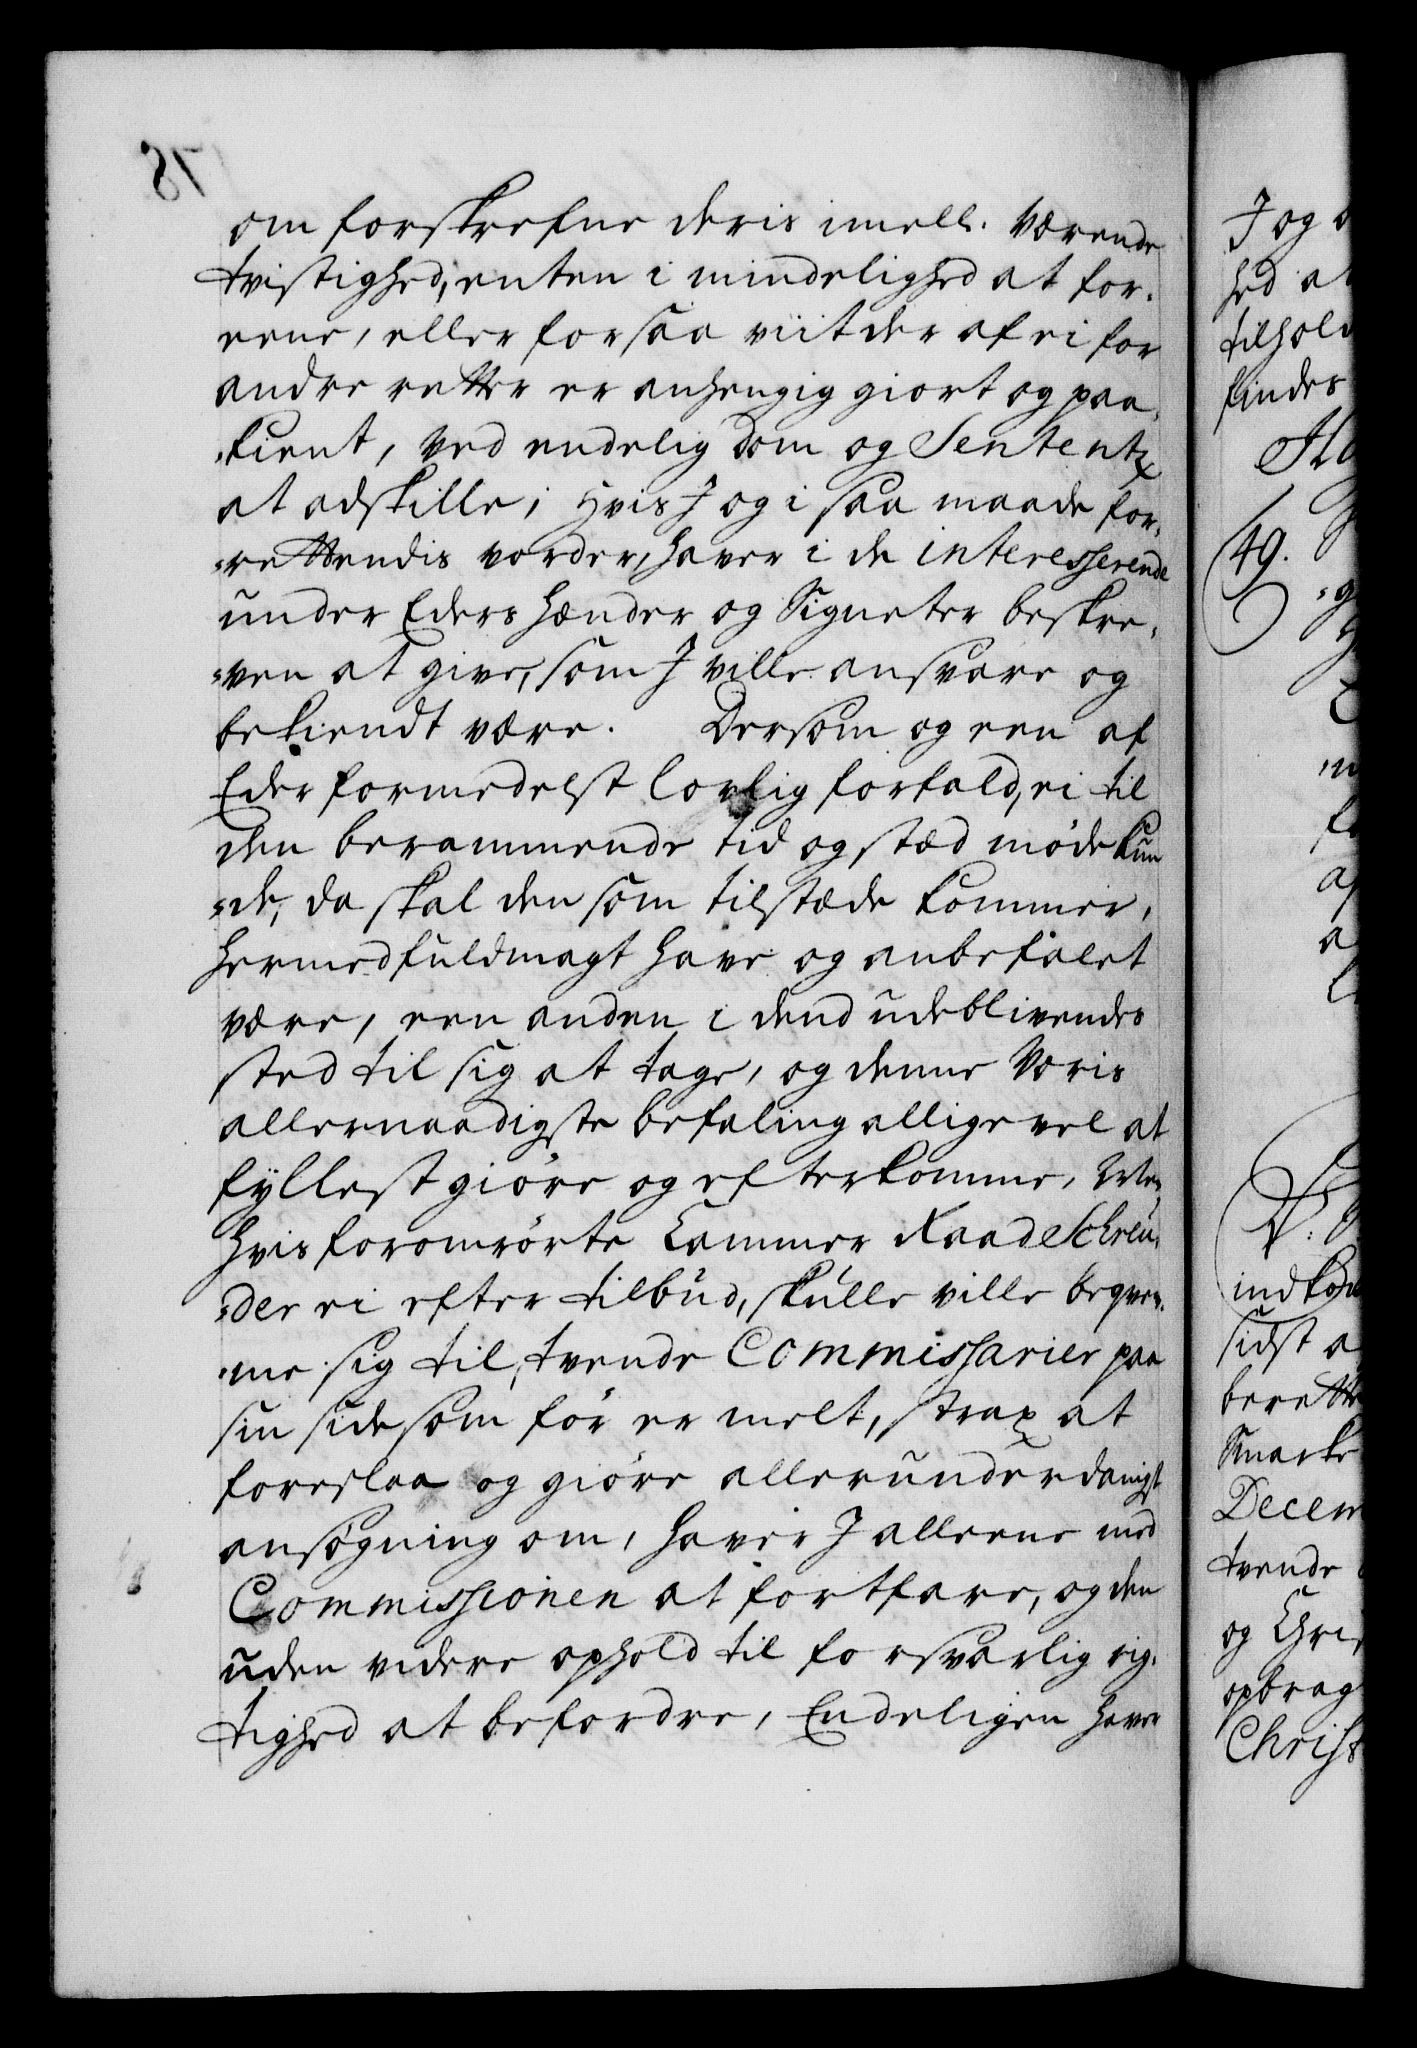 om forskrefne deris imell. værende
tvistighed, enten i mindelighed at for-
eene, eller forsaa viit der af ei for
andre retter er anhengig giort og paa-
kient, ved endelig dom og Sententz
at adskille; Hvis I og i saa maade for-
rettendis vorder, haver i de interesserende
under Eders hænder og Signeter beskre-
ven at give, som I ville ansvare og
bekiendt være. Dersom og een af
Eder formedelst lovlig forfald, ei til
den berammende tid og stæd møde kun-
de, da skal den som tilstæde kommer,
hermed fuldmagt have og anbefalet
være, een anden i dend udeblivendes
sted til sig at tage, og denne Voris
allernaadigste befaling alligevel at
fyllest giøre og efterkomme, Men
hvis foromrørte Cammer Raad Schreu-
der ei efter tilbud, skulle ville beqvem-
me sig til, tvende Commissarier paa
sin side som før er melt, strax at
foreslaa og giøre allerunderdanigst
ansøgning om, haver I alleene med
Commissionen at fortfare, og den
uden videre ophold til forsvarlig rig-
tighed at befordre, Endeligen haver
I og
hed at
tilhold
findes
49.
indkom
sidst a
berette
Decem
tvende
og Chri
opbrag
Christ